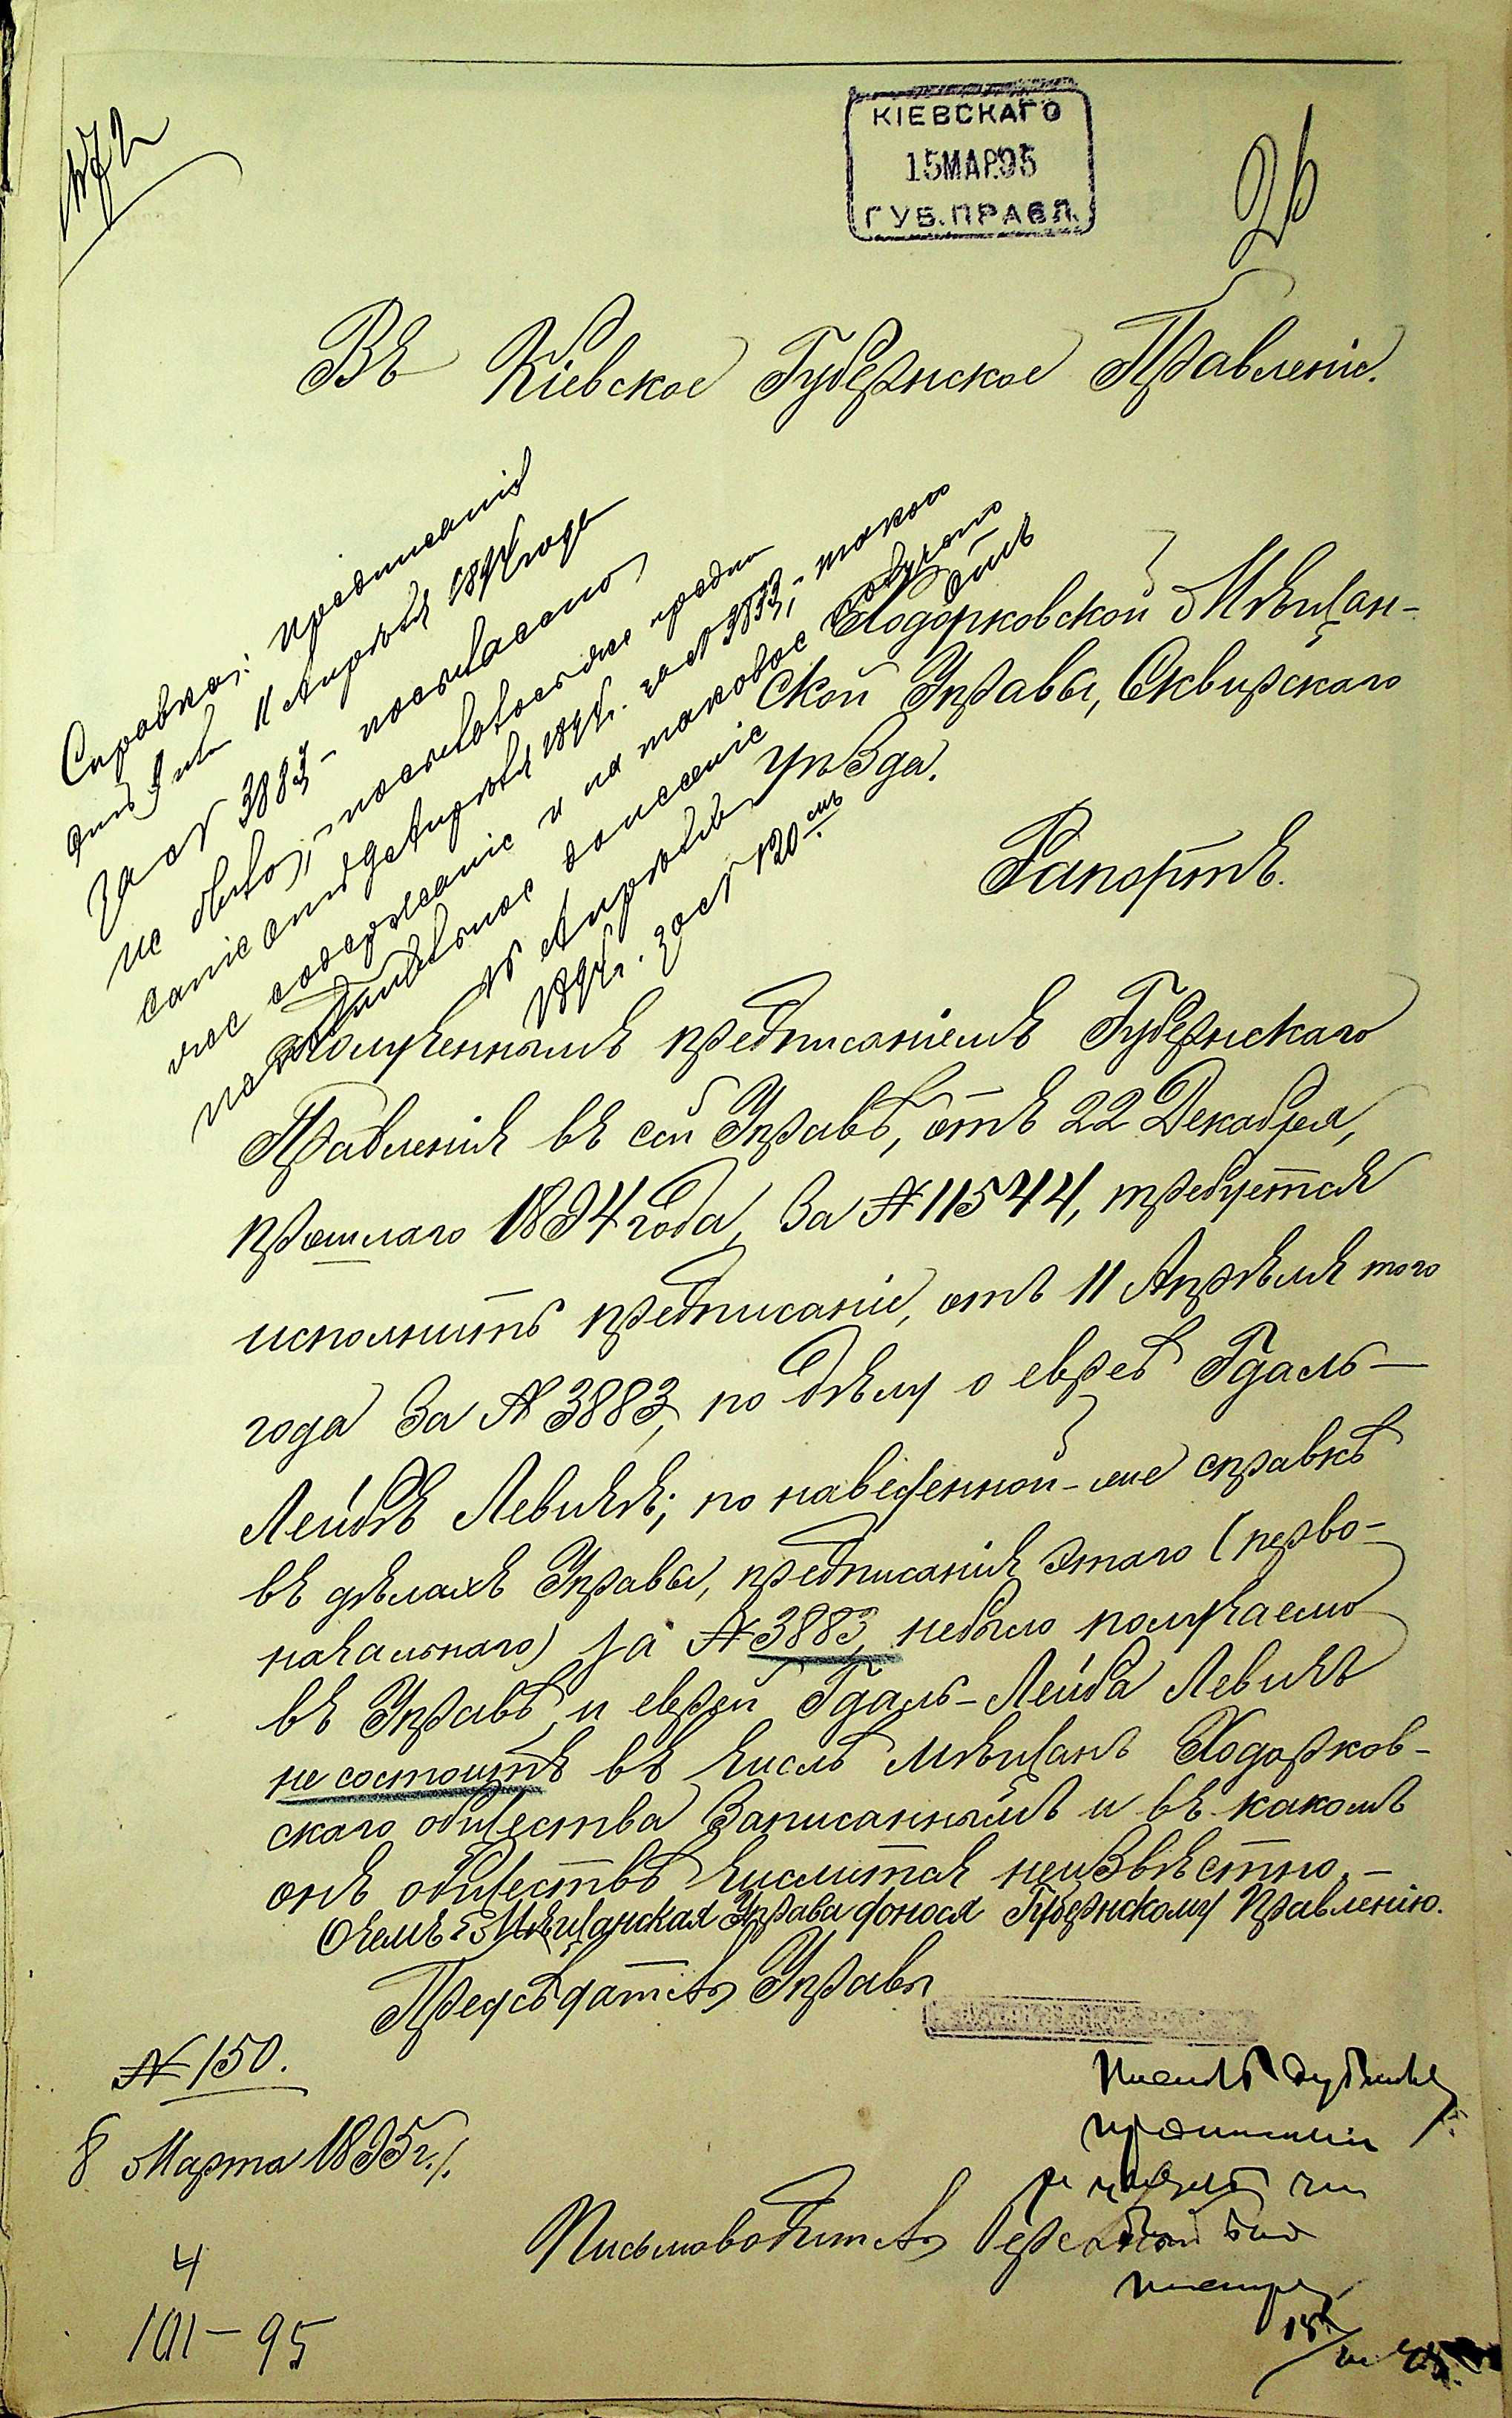 КІЕВСКАГО
15 МАР. 95
ГУБ. ПРАВЛ.
26
Въ Кіевское Губернское Правленіе.
Ходорковской Мѣщан-
ской Управы, Сквирскаго
уѣзда.
Рапортъ.
Справка: предписанія
отъ 11 Апрѣля 1894 года
за № 3883 – посылаемо
не было; посылалось же предпи
саніе отъ Апрѣля 1894 г. за № 3833, такого
же содержанія и на таковое получено
донесеніе отъ
Апрѣля
1894 г. за № 120
Полученнымъ предписаніемъ Губернскаго
Правленія въ сей Управѣ, отъ 22 Декабря,
прошлаго 1894 года, за № 11544, требуется
исполнить предписаніе, отъ 11 Апрѣля того
года за № 3883, по дѣлу о евреѣ Гдаль-
Лейбѣ Левичѣ; по наведенной-же справкѣ
въ дѣлахъ Управы, предписанія этаго (перво-
начальнаго) за № 3883, небыло получаемо
въ Управѣ, и еврей Гдаль-Лейба Левичъ
не состоитъ въ числѣ мѣщанъ Ходорков-
скаго общества записаннымъ и въ какомъ
онъ обществѣ числится неизвѣстно, –
О чемъ Мѣщанская Управа донося Губернскому Правленію.
Предсѣдатель Управы
№ 150.
8 Марта 1895 г.
Письмоводитель
4
101–95